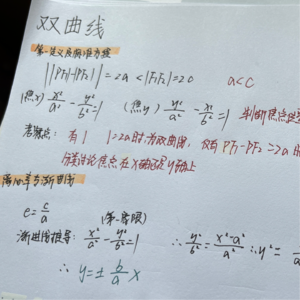 双曲线
第一定义及标准方程
||PF₁|-|PF₂||=2a <|F₁F₂|=2c a<c
(焦x) x²/a² - y²/b² =1 (焦y) y²/a² - x²/b² =1 判断焦点
考察点: 有| |=2a时为双曲线, 仅有PF₁-PF₂=2a
分类讨论焦点在x轴还是y轴上
离心率与渐近线
e=c/a
(第一象限)
渐进线推导: x²/a² - y²/b² =1 ∴ y²/b² = x²-a²/a² ∴ y²=
∴ y=± b/a x